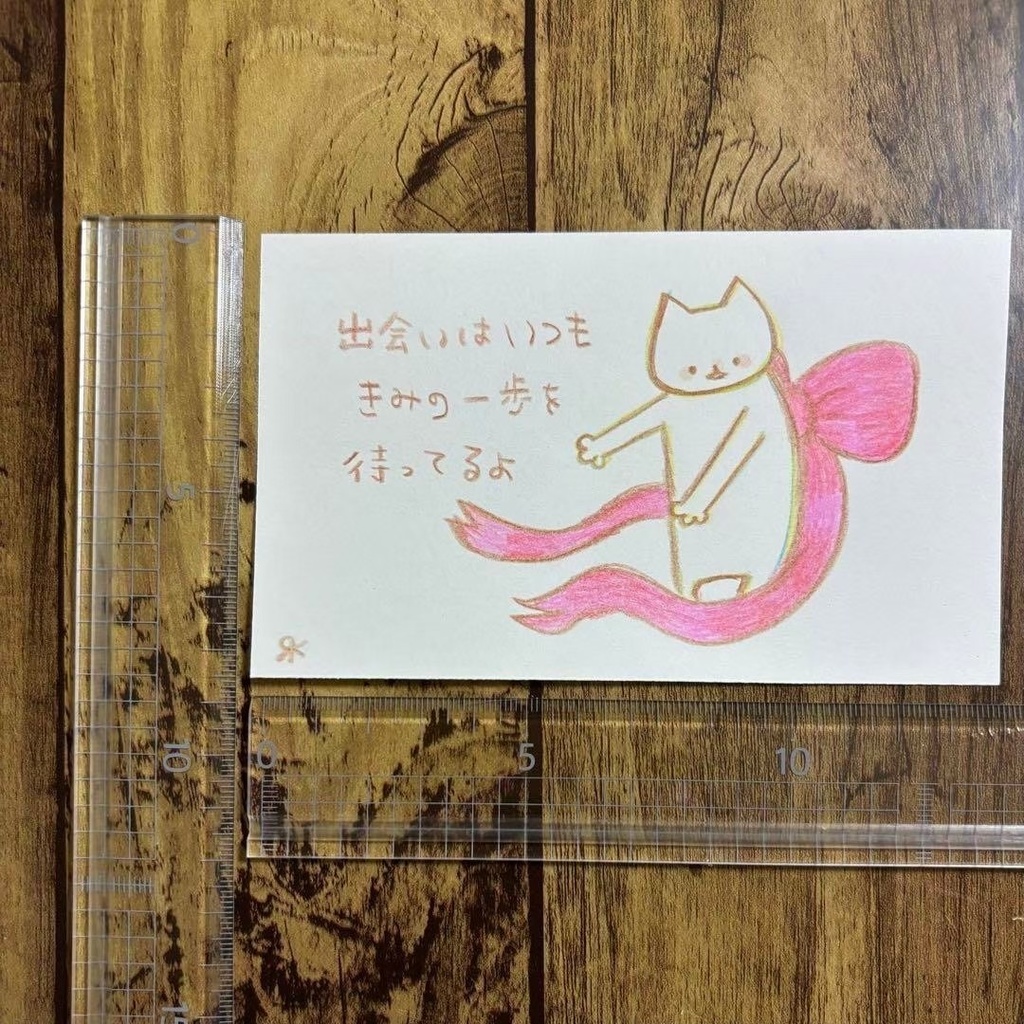 出会いはいつも
きみの一歩を
待ってるよ
0
5
10
15
0
5
10